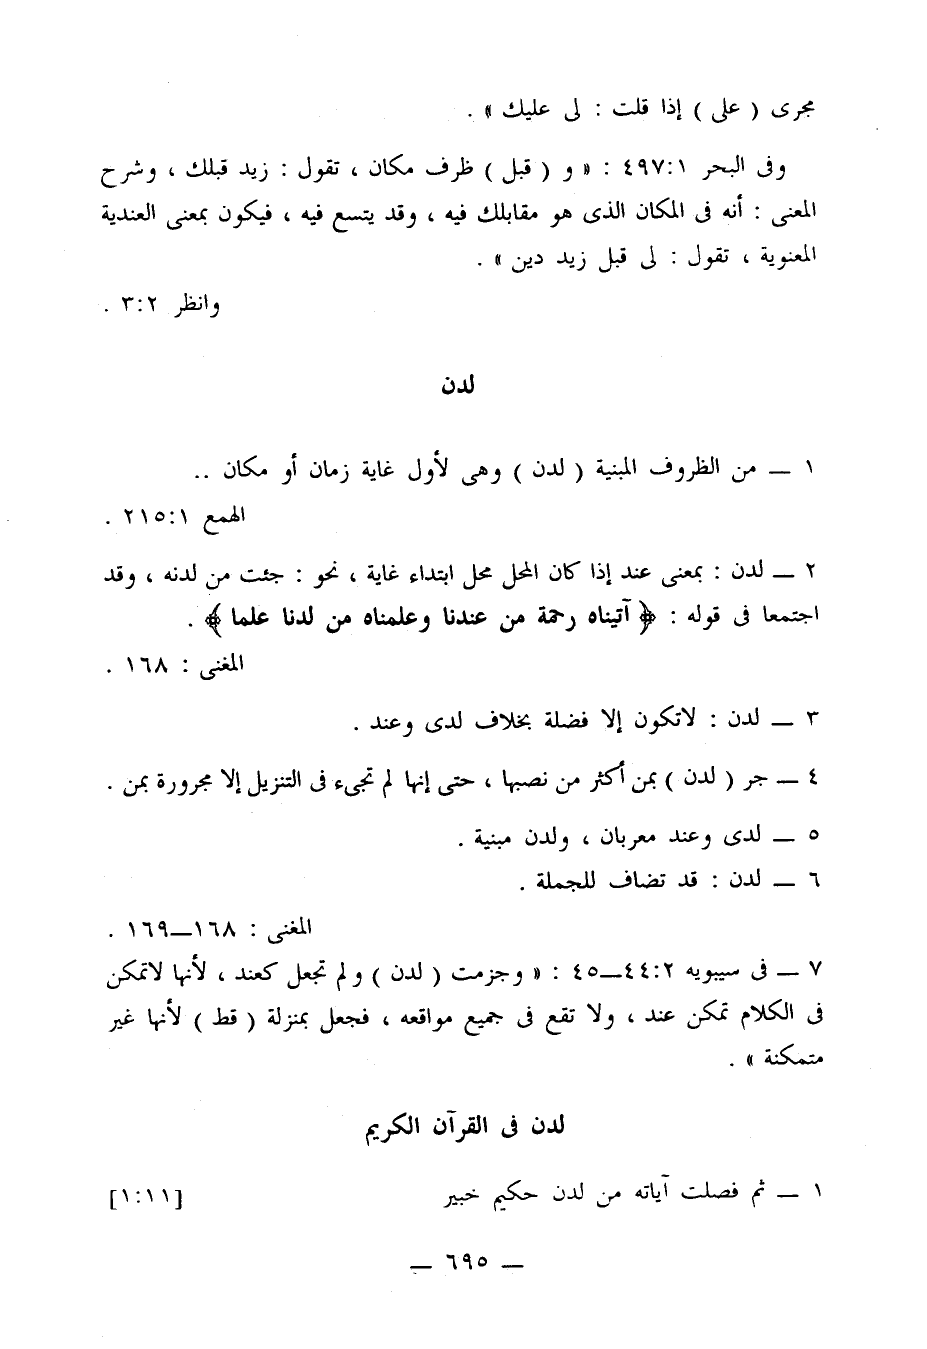 مجرى ( على ) إذا قلت : لى عليك » .
وفى البحر ٤٩٧:١ : « و ( قبل ) ظرف مكان ، تقول : زيد قبلك ، وشرح
المعنى : أنه فى المكان الذى هو مقابلك فيه ، وقد يتسع فيه ، فيكون بمعنى العندية
المعنوية ، تقول : لى قبل زيد دين » .
وانظر ٣:٢ .
لدن
١ ــ من الظروف المبنية ( لدن ) وهى لأول غاية زمان أو مكان ..
الهمع ٢١٥:١ .
٢ ــ لدن : بمعنى عند إذا كان المحل محل ابتداء غاية ، نحو : جئت من لدنه ، وقد
اجتمعا فى قوله : ﴿ آتيناه رحمة من عندنا وعلمناه من لدنا علما ﴾ .
المغنى : ١٦٨ .
٣ ــ لدن : لاتكون إلا فضلة بخلاف لدى وعند .
٤ ــ جر ( لدن ) بمن أكثر من نصبها ، حتى إنها لم تجىء فى التنزيل إلا مجرورة بمن .
٥ ــ لدى وعند معربان ، ولدن مبنية .
٦ ــ لدن : قد تضاف للجملة .
المغنى : ١٦٨ــ١٦٩ .
٧ ــ فى سيبويه ٤٤:٢ــ٤٥ : « وجزمت ( لدن ) ولم تجعل كعند ، لأنها لاتمكن
فى الكلام تمكن عند ، ولا تقع فى جميع مواقعه ، فجعل بمنزلة ( قط ) لأنها غير
متمكنة » .
لدن فى القرآن الكريم
١ ــ ثم فصلت آياته من لدن حكيم خبير [١:١١]
ــ ٦٩٥ ــ